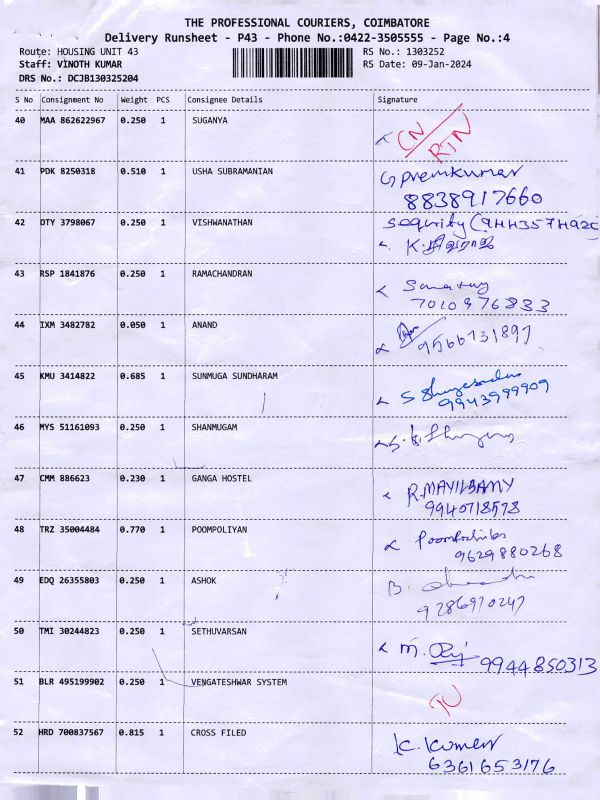 THE PROFESSIONAL COURIERS, COIMBATORE
Delivery Runsheet - P43 - Phone No.:0422-3505555 - Page No.:4
Route: HOUSING UNIT 43 RS No.: 1303252
Staff: VINOTH KUMAR RS Date: 09-Jan-2024
DRS No.: DCJB130325204
S No Consignment No Weight PCS Consignee Details Signature
40 MAA 862622967 0.250 1 SUGANYA CN
RTN
41 PDK 8250318 0.510 1 USHA SUBRAMANIAN G premkumar
8838917660
42 OTY 3798067 0.250 1 VISHWANATHAN
43 RSP 1841876 0.250 1 RAMACHANDRAN
7010976833
44 IXM 3482782 0.050 1 ANAND
9566731897
45 KMU 3414822 0.685 1 SUNMUGA SUNDHARAM
9943999909
46 MYS 51161093 0.250 1 SHANMUGAM
47 CMM 886623 0.230 1 GANGA HOSTEL R.MAYILSAMY
9940718578
48 TRZ 35004484 0.770 1 POOMPOLIYAN
9629880268
49 EDQ 26355803 0.250 1 ASHOK B.
9286970247
50 TMI 30244823 0.250 1 SETHUVARSAN M.
9944850313
51 BLR 495199902 0.250 1 VENGATESHWAR SYSTEM
52 HRD 700837567 0.815 1 CROSS FILED K. Kumar
6361653176